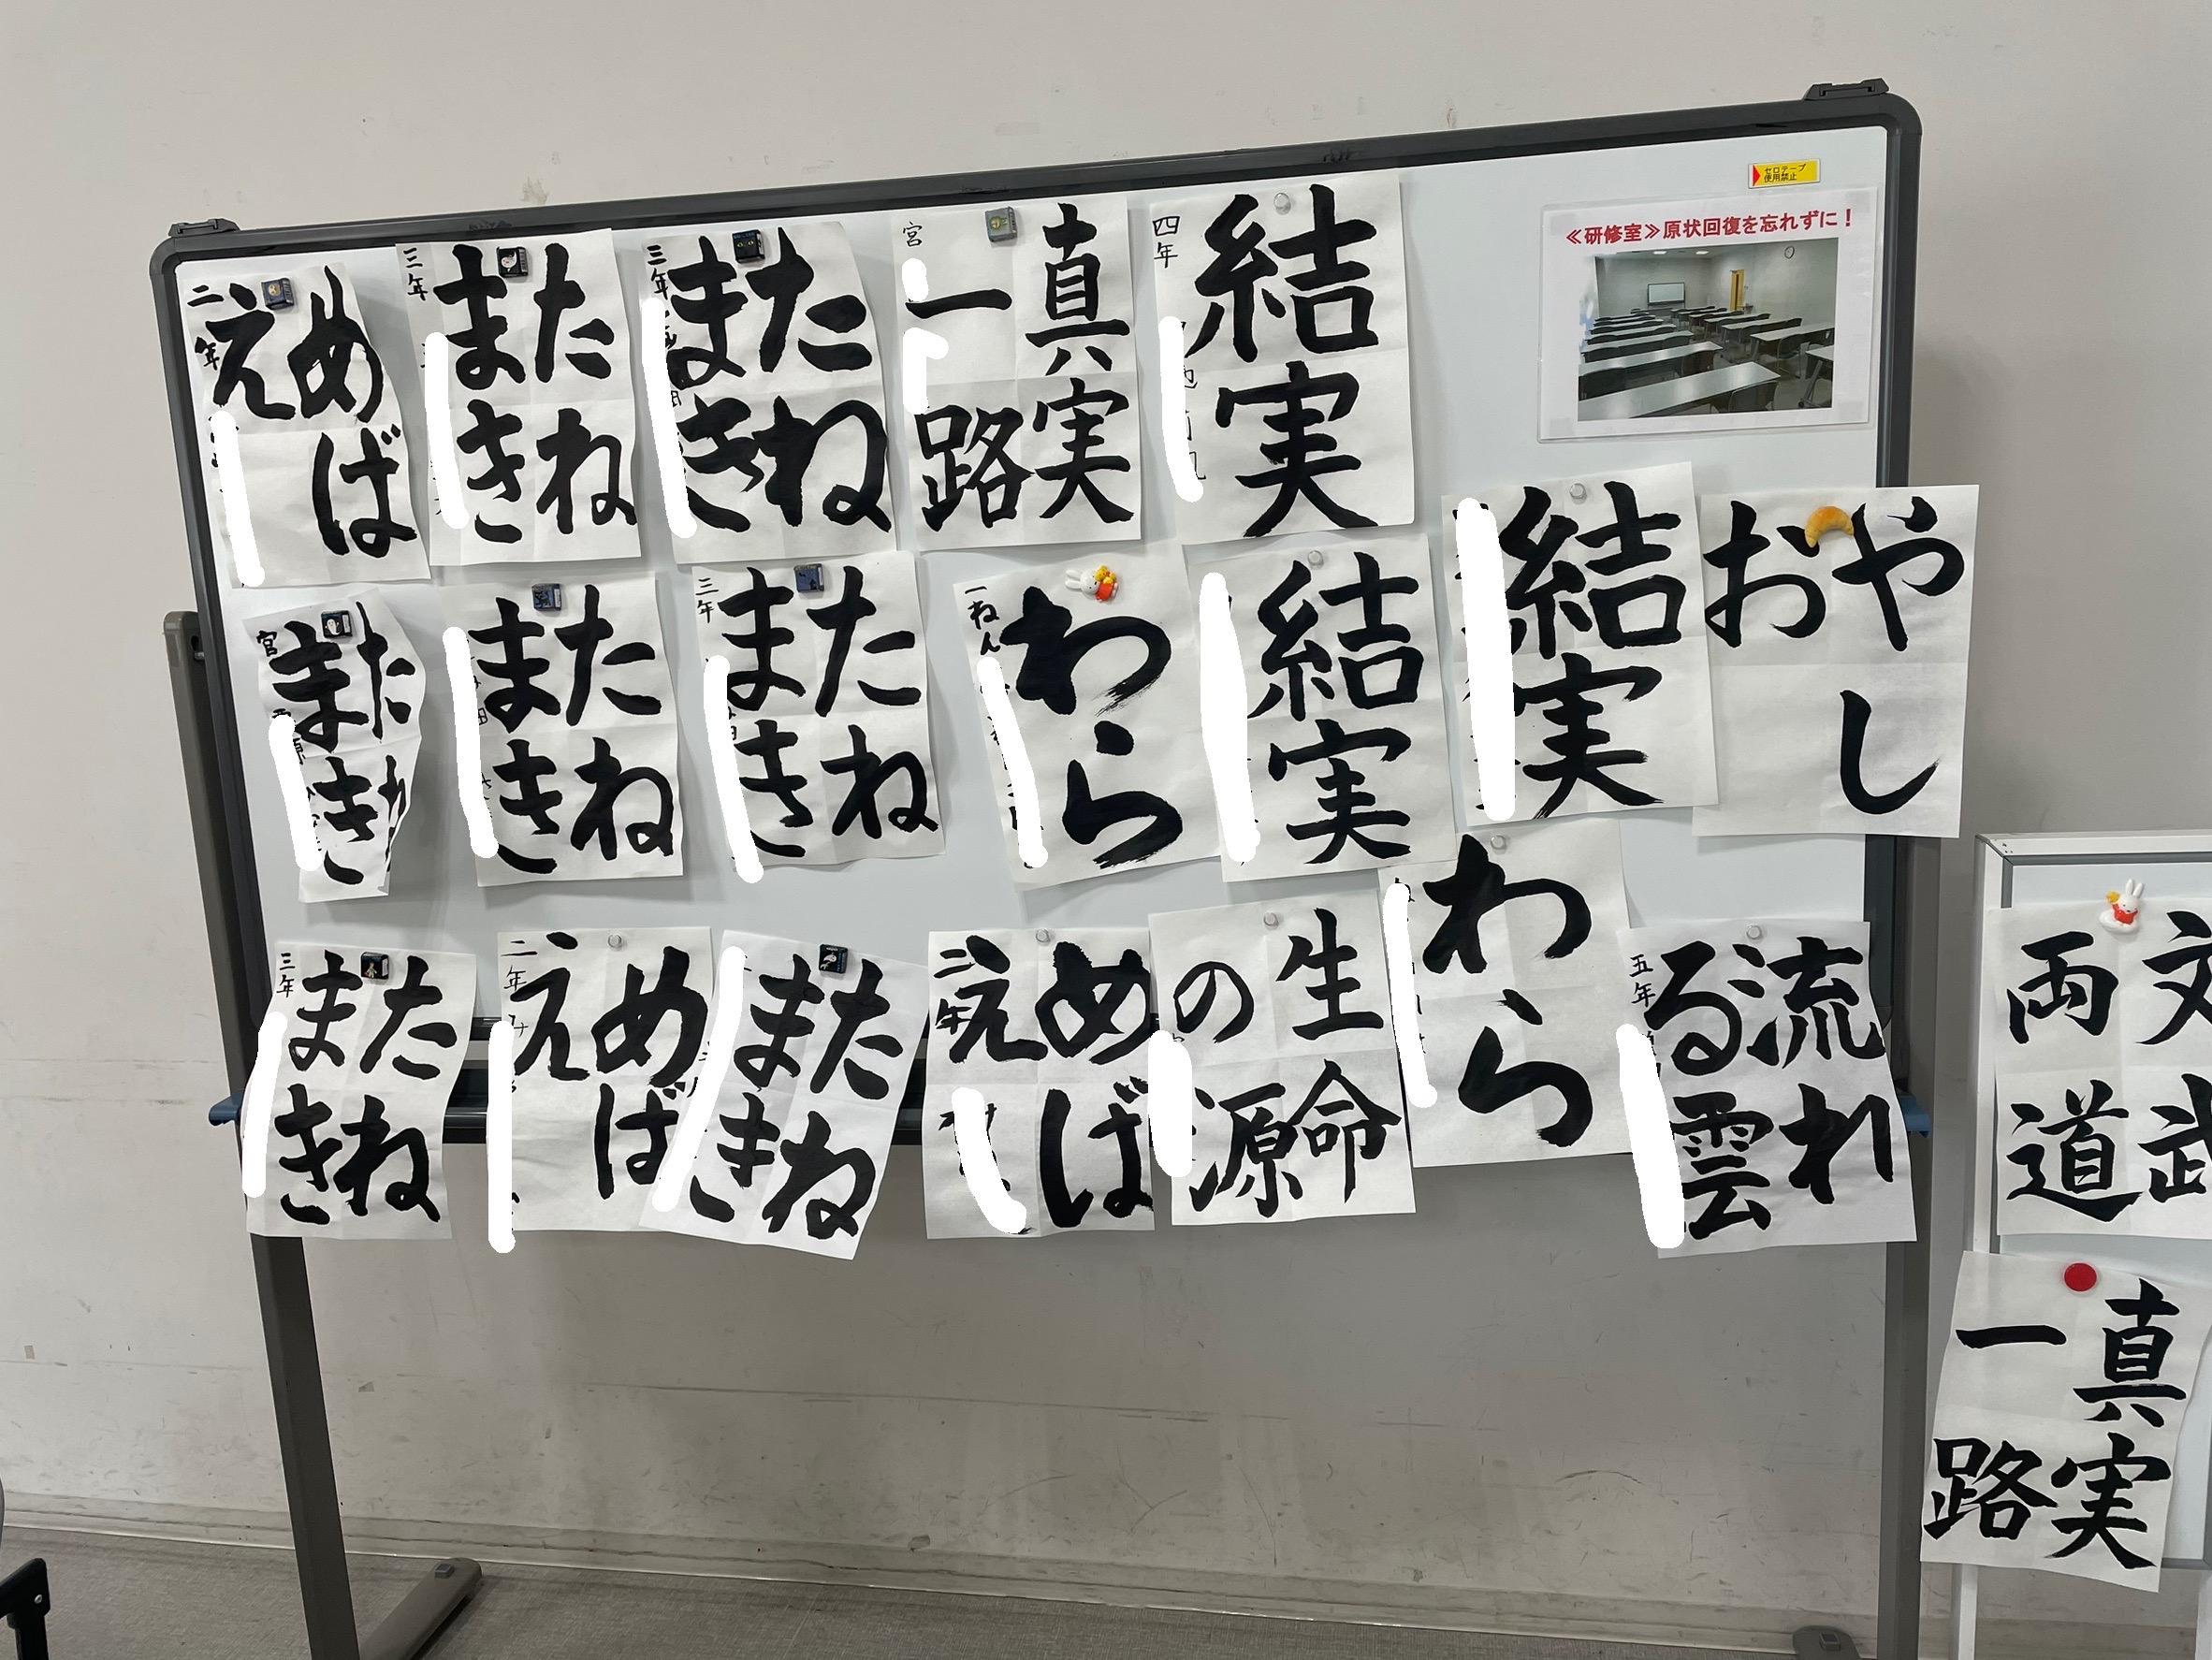 セロテープ
使用禁止
≪研修室≫原状回復を忘れずに！
めば
え
二年
たね
まき
三年
たね
まき
三年
真実
一路
宮
結実
四年
たね
まき
宮
たね
まき
たね
まき
三年
わら
一ねん
結実
結実
やし
お
たね
まき
三年
めば
え
二年
たね
まき
めば
え
二年
生命
の源
わら
流れ
る雲
五年
文武
両道
真実
一路